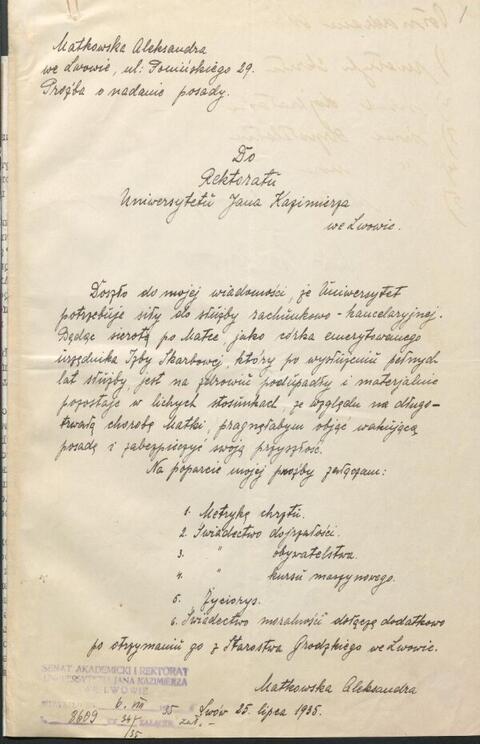 Matkowska Aleksandra
we Lwowie, ul. Tomińskiego 29.
Prośba o nadanie posady.
Do
Rektoratu
Uniwersytetu Jana Kazimierza
we Lwowie.
Doszło do mojej wiadomości, że Uniwersytet
potrzebuje siły do służby rachunkowo-kancelaryjnej.
Będąc sierotą po Matce, jako córka emerytowanego
urzędnika Izby Skarbowej, który po wysłużeniu pełnych
lat służby, jest na zdrowiu podupadły i materjalnie
pozostaje w lichych stosunkach, ze względu na długo-
trwałą chorobę Matki, pragnęłabym objąć wakującą
posadę i zabezpieczyć swoją przyszłość.
Na poparcie mojej prośby załączam:
1. Metrykę chrztu.
2. Świadectwo dojrzałości.
3. " obywatelstwa.
4. " kursu maszynowego.
5. Życiorys.
6. Świadectwo moralności dołączę dodatkowo
po otrzymaniu go z Starostwa Grodzkiego we Lwowie.
Matkowska Aleksandra
Lwów 25. lipca 1935.
SENAT AKADEMICKI I REKTORAT
UNIWERSYTETU JANA KAZIMIERZA
WE LWOWIE
6. VIII 35
8609